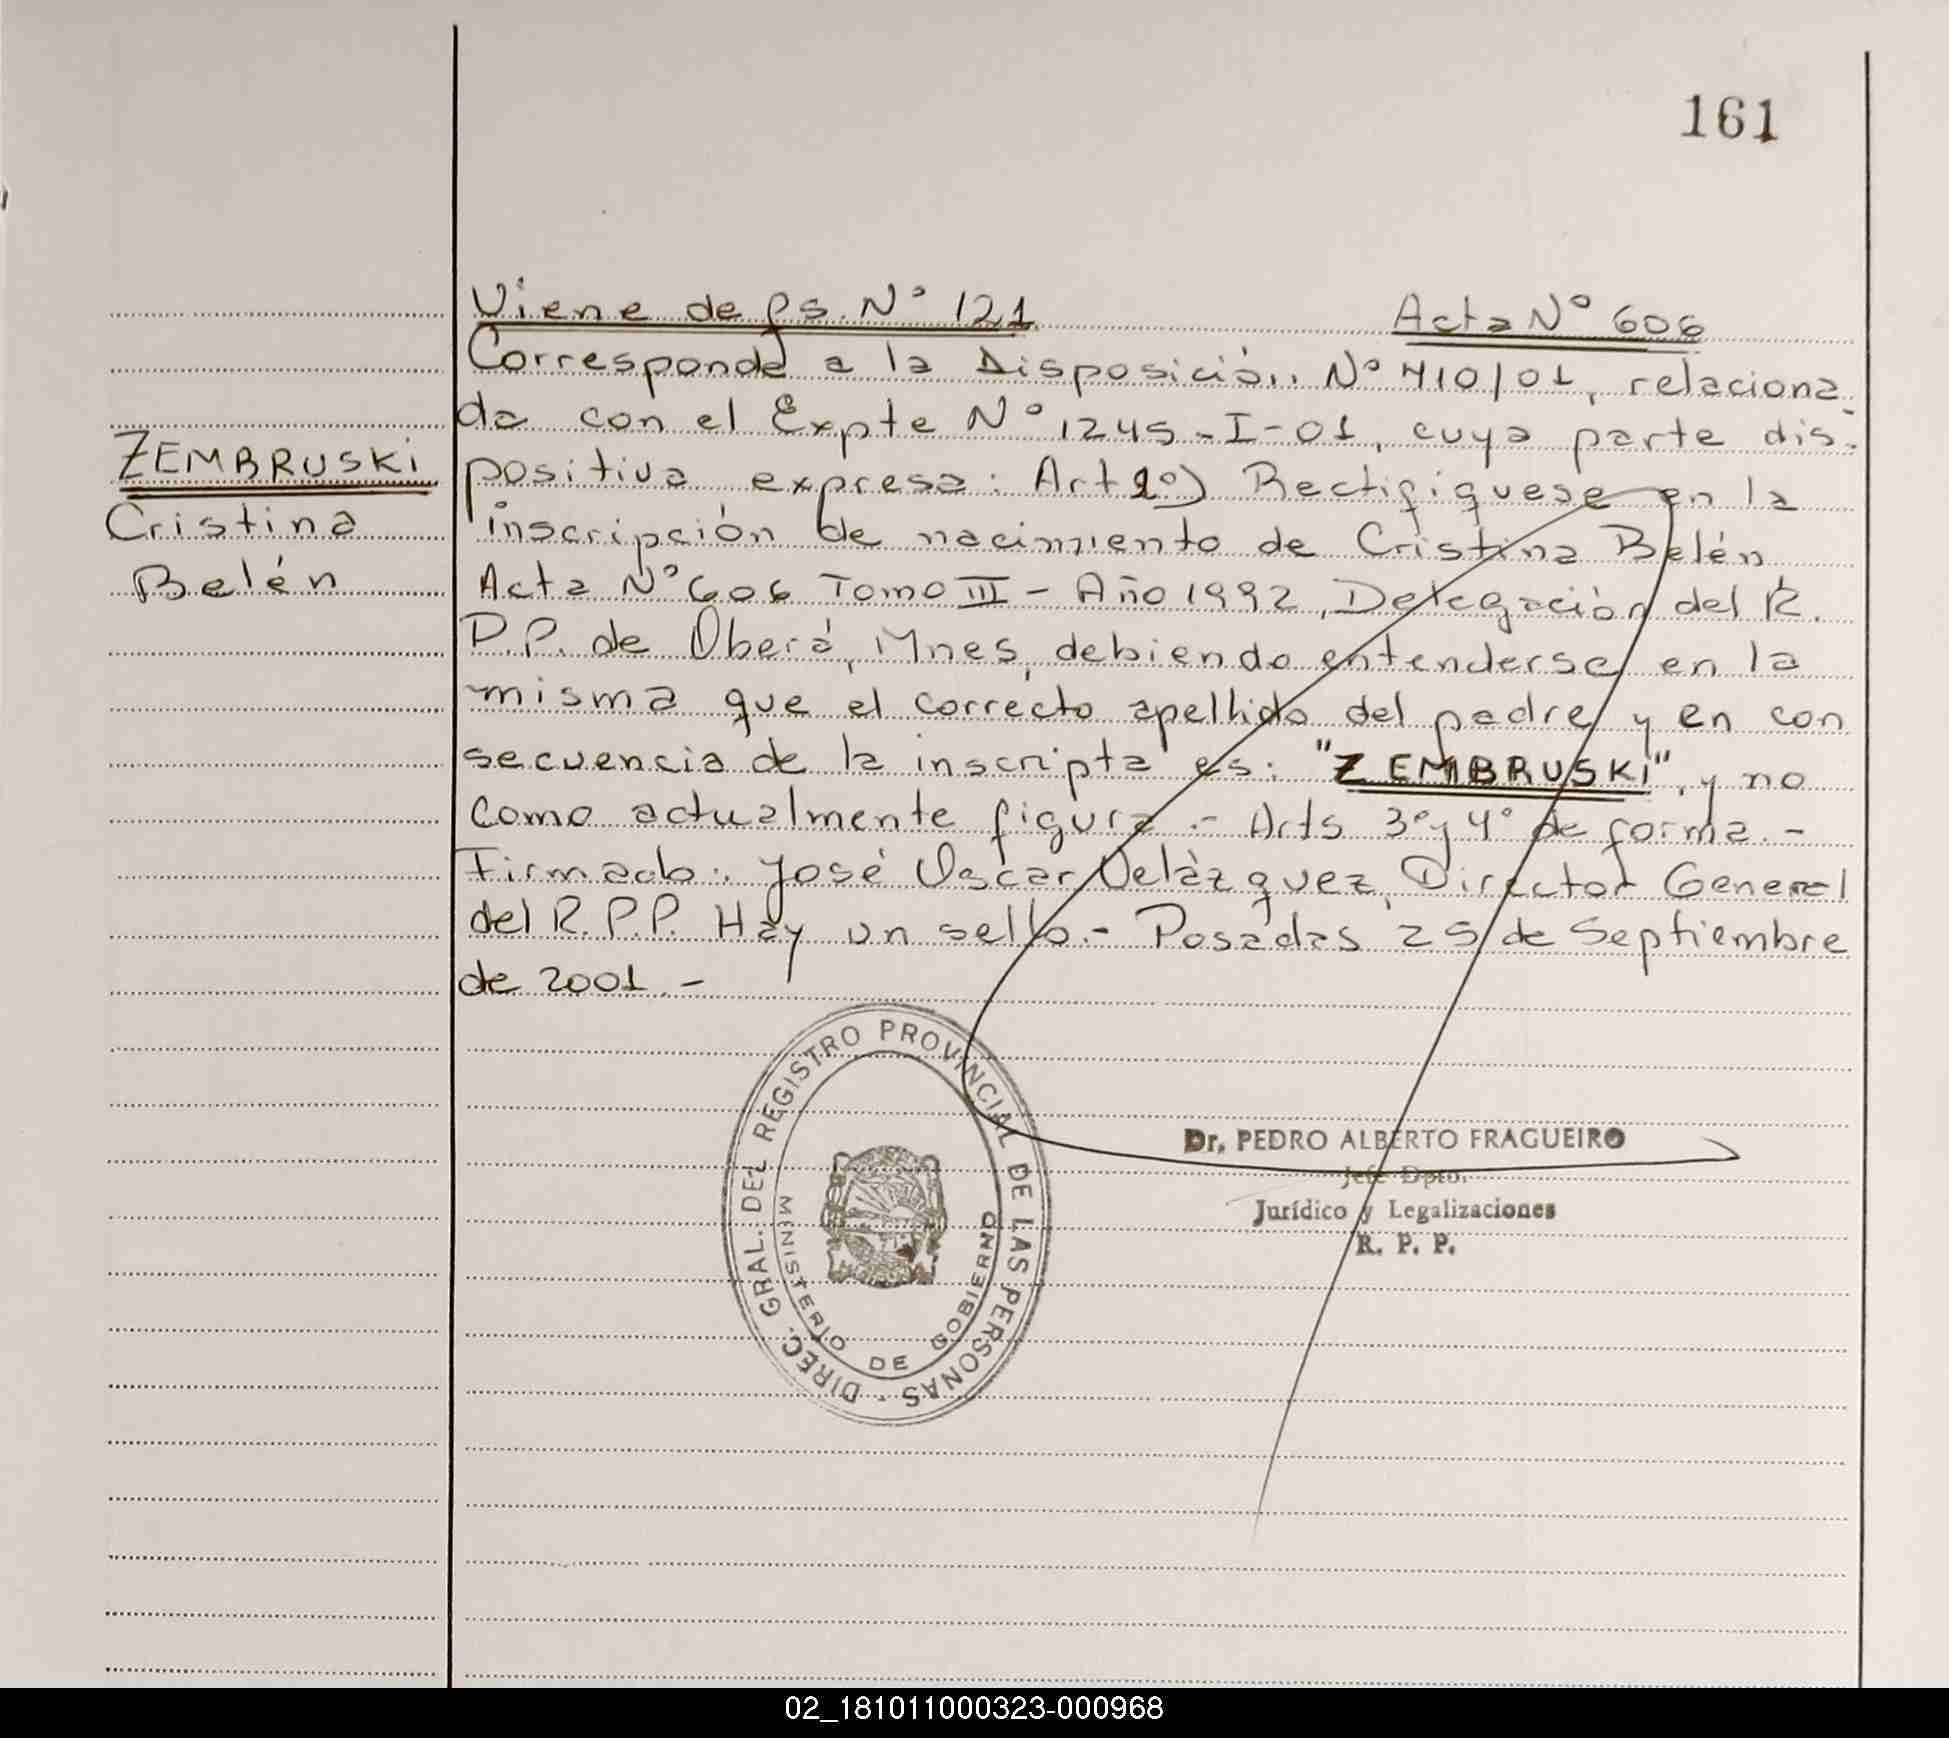 161
Viene de fs. N° 121
Acta N° 606
Corresponde a la Disposición N° 410/01, relaciona
da con el Expte N° 1245-I-01, cuya parte dis-
positiva expresa: Art 2°) Rectifiquese en la
inscripción de nacimiento de Cristina Belén
Acta N° 606 Tomo III - Año 1992, Delegación del R.
P.P. de Oberá, Mnes, debiendo entenderse en la
misma que el correcto apellido del padre y en con
secuencia de la inscripta es: "ZEMBRUSKI", y no
como actualmente figura.- Arts 3° y 4° de forma.-
Firmado: José Oscar Velázquez, Director General
del R.P.P. Hay un sello.- Posadas 25 de Septiembre
de 2001.-
ZEMBRUSKI
Cristina
Belén
DIREC. GRAL. DEL REGISTRO PROVINCIAL DE LAS PERSONAS -
MINISTERIO DE GOBIERNO
Dr. PEDRO ALBERTO FRAGUEIRO
Jefe Dpto.
Jurídico y Legalizaciones
R. P. P.
02_181011000323-000968